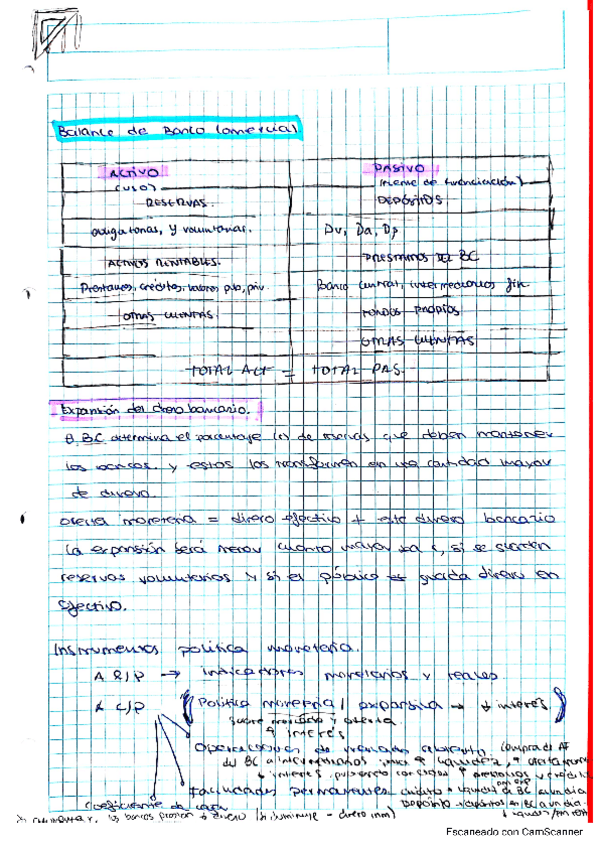 Balance de Banco Comercial
ACTIVO
(USO)
PASIVO
(fuente de financiación)
RESERVAS.
DEPÓSITOS
obligatorias, y voluntarias.
Dv, Da, Dp
ACTIVOS RENTABLES.
PRESTAMOS DEL BC
Prestamos, créditos, valores pub, priv.
Banco Central, intermediarios fin.
OTRAS CUENTAS.
FONDOS PROPIOS
OTRAS CUENTAS
TOTAL ACT = TOTAL PAS.
Expansión del dinero bancario.
El BC determina el porcentaje (r) de reservas que deben mantener
los bancos. y estos los transforman en una cantidad mayor
de dinero.
Oferta monetaria = dinero efectivo + este dinero bancario
La expansión será menor cuanto mayor sea r, si se guardan
reservas voluntarias y si el público guarda dinero en
efectivo.
Instrumentos política monetaria.
A R/P → indicadores monetarios y reales
A C/P
(Política monetaria expansiva → ↓ interés)
oferta
↑ interés
Operaciones de mercado abierto. Compra de AF
del BC a intermediarios ↑ liquidez, ↑ oferta
↓ interes
Facilidades permanentes. crédito
Depósito
Coeficiente de caja
los bancos prestan ↑ dinero (si disminuye - dinero
Escaneado con CamScanner